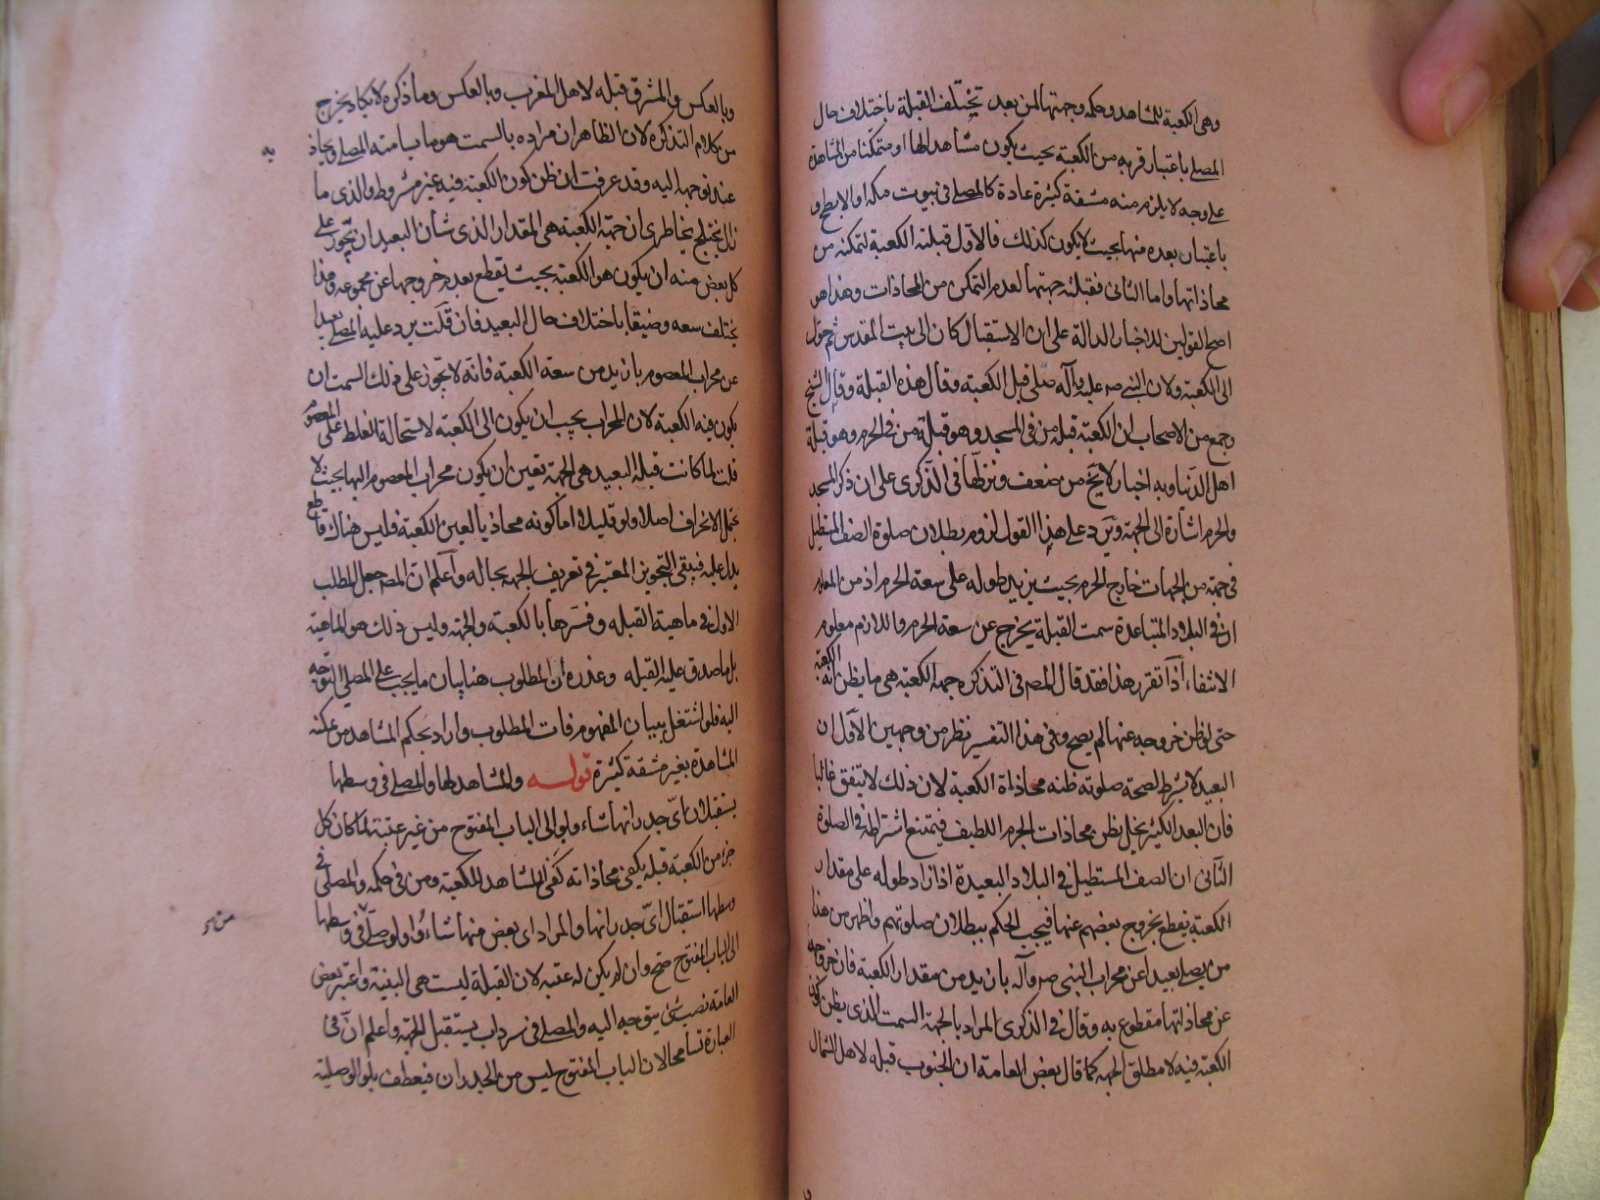 وهى الكعبة للمشاهد وحكمه وجهتها لمن بعد تختلف القبلة باختلاف حال
المصلى باعتبار قربه من الكعبة بحيث يكون مشاهدا لها او متمكنا من المشاهدة
على وجه لا يلزم منه مشقة كثيرة عادة كالمصلى فى بيوت مكة او الابطح و
باعتبار بعده منها بحيث لا يكون كذلك فالاول قبلته الكعبة لتمكنه من
محاذاتها واما الثانى فقبلته جهتها لعدم التمكن من المحاذات وهذا هو
اصح القولين للاخبار الدالة على ان الاستقبال كان الى بيت المقدس ثم حول
الى الكعبة ولان النبى صه عليه وآله صلى قبل الكعبة وقال هذه القبلة وقال الشيخ
وجمع من الاصحاب ان الكعبة قبلة من فى المسجد وهو قبلة من فى الحرم وهو قبلة
اهل الدنيا وبه اخبار لا تخ من ضعف ونزلها فى الذكرى على ان ذكر المسجد
والحرم اشارة الى الجهة ويرد على هذا القول لزوم بطلان صلوة الصف المستطيل
فى جهة من الجهات خارج الحرم بحيث يزيد طوله على سعة الحرم اذ من المعلوم
ان فى البلاد المتباعدة سمت القبلة يخرج عن سعة الحرم فاللازم معلوم
الانتفاء اذا تقرر هذا فقد قال المص فى التذكره جهة الكعبة هى ما يظن انه الكعبة
حتى لو ظن خروجه عنها لم يصح وفى هذا التفسير نظر من وجهين الاول ان
البعيد لا يشترط لصحة صلوته ظنه محاذاة الكعبة لان ذلك لا يتفق غالبا
فان البعد الكثير يخل بظن محاذات الجرم اللطيف فيمتنع اشتراطه فى الصلوة
الثانى ان الصف المستطيل فى البلاد البعيدة اذا زاد طوله على مقدار
الكعبة يقطع بخروج بعضهم عنها فيجب الحكم ببطلان صلوتهم واظهر من هذا
من يصلى بعيدا عن محراب النبى ص وآله بازيد من مقدار الكعبة فان خروجه
عن محاذاتها مقطوع به وقال فى الذكرى المراد بالجهة السمت الذى يظن كون
الكعبة فيه لا مطلق الجهه كما قال بعض العامة ان الجنوب قبله لاهل الشمال
وبالعكس والمشرق قبله لاهل المغرب وبالعكس وما ذكره لا يكاد يخرج
من كلام التذكره لان الظاهر ان مراده بالسمت هو ما يسامته المصلى ويحاذ
يه
عند توجهه اليه وقد عرفت ان ظن كون الكعبة فيه غير مشروط والذى ما
زال يختلج بخاطرى ان جهة الكعبة هى المقدار الذى شأن البعيد ان يجوز على
كل بعض منه ان يكون هو الكعبة بحيث يقطع بعدم خروجها عن مجموعه وهذا
يختلف سعه وضيقا باختلاف حال البعيد فان قلت يرد عليه المصلى بعيدا
عن محراب المعصوم بازيد من سعة الكعبة فانه لا يجوز على ذلك السمت ان
يكون فيه الكعبة لان المحراب يجب ان يكون الى الكعبة لاستحالة الغلط على المعصوم
قلت لما كانت قبلة البعيد هى الجهة تعين ان يكون محراب المعصوم اليها بحيث لا
يحتمل الانحراف اصلا ولو قليلا اما كونه محاذيا لعين الكعبة فليس هناك قاطع
يدل عليه فيبقى التجويز المعتبر فى تعريف الجهة بحاله واعلم ان المص جعل المطلب
الاول فى ماهية القبله وفسرها بالكعبة والجهة وليس ذلك هو الماهية
بل ما صدق عليه القبله وعذره ان المطلوب هنا بيان ما يجب على المصلى التوجه
اليه فلو اشتغل ببيان المفهوم فات المطلوب واراد بحكم المشاهد من يمكنه
المشاهدة بغير مشقة كثيرة قوله والمشاهد لها والمصلى فى وسطها
يستقبلان اى جدرانها شاء ولو الى الباب المفتوح من غير عتبة لما كان كل
جزء من الكعبة قبلة يكفى محاذاته كفى للمشاهد للكعبة ومن فى حكمه والمصلى فى
وسطها استقبال اى جدرانها والمراد اى بعض منها شاء ولو صلى فى وسطها
الى الباب المفتوح صح وان لم يكن له عتبه لان القبلة ليست هى البنية واعتبر بعض
العامة نصب شئ يتوجه اليه والمصلى فى سرداب يستقبل الجهة واعلم ان فى
العبارة تسامحا لان الباب المفتوح ليس من الجدران فيعطف بلو الوصلية